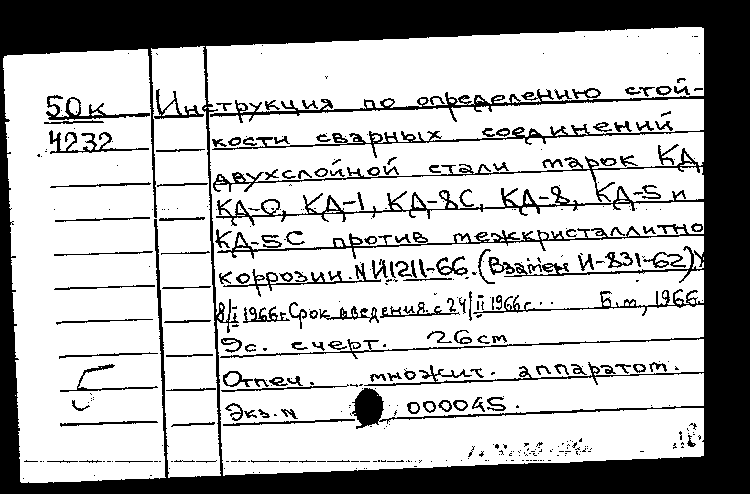 50к Инструкция по определению стой-
4232 кости сварных соединений
двухслойной стали марок КД,
КД-0, КД-1, КД-8С, КД-8, КД-5 и
КД-5С против межкристаллитно
коррозии. N И1211-66. (Взамен И-831-62) У
8/I 1966г. Срок введения с 24/II 1966г... Б.м., 1966.
9с. с черт. 26см
5 Отпеч. множит. аппаратом.
Экз. N 000045.